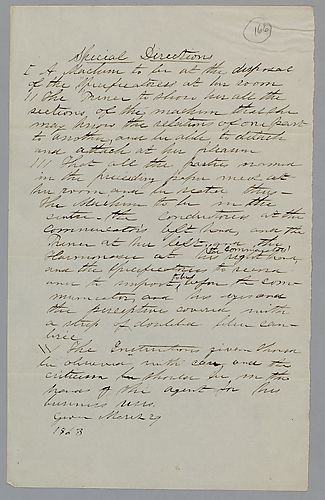 166
Special Directions
I A Machine to be at the disposal
of the Specificatress at her room
II The Tuner to show her all the
sections, of the machine that she
may know the relations of one part
to another, and be able to detach
and attach at her pleasure
III That all the parties named
in the preceding paper meet at
her room and be seated thus—
The Machine to be in the
centre— the conductress at the
Communicators left hand, and the
Tuner at her left, and the
Harmonizer at the communicators right hand,
and the Specificatress to be seated
before the com-
municator, and his eyes and
the perceptive covered with
a strip of doubled blue cam-
bric
IV The Instructions given should
be observed with care, and the
criticism should be in the
hands of the agent for this
business
Given March 29
1853